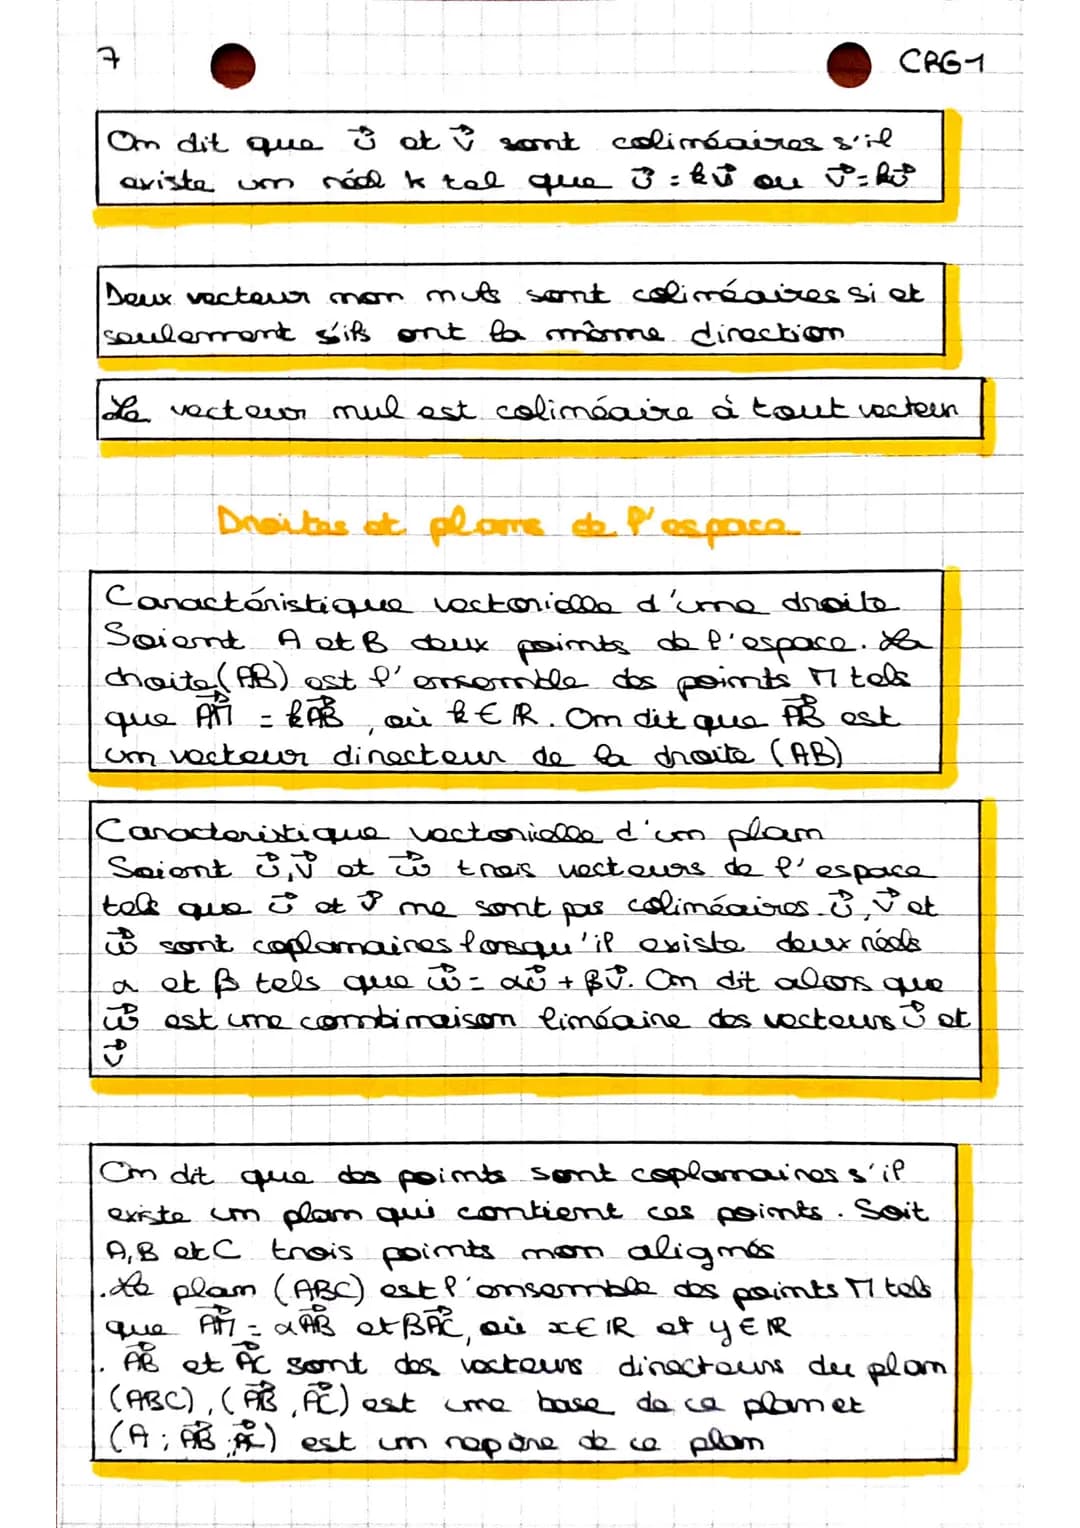 7
CRG-1
On dit que u⃗ et v⃗ sont colinéaires s'il
existe un réel k tel que u⃗ = kv⃗ ou v⃗ = ku⃗
Deux vecteur non nuls sont colinéaires si et
seulement s'ils ont la même direction
Le vecteur nul est colinéaire à tout vecteur
Droites et plans de l'espace
Caractéristique vectorielle d'une droite
Soient A et B deux points de l'espace. La
droite (AB) est l'ensemble des points M tels
que AM⃗ = kAB⃗, où k ∈ ℝ. On dit que AB⃗ est
un vecteur directeur de la droite (AB)
Caracteristique vectorielle d'un plan
Soient u⃗, v⃗ et w⃗ trois vecteurs de l'espace
tels que u⃗ et v⃗ ne sont pas colinéaires. u⃗, v⃗ et
w⃗ sont coplanaires lorsqu'il existe deux réels
α et β tels que w⃗ = αu⃗ + βv⃗. On dit alors que
w⃗ est une combinaison linéaire des vecteurs u⃗ et
v⃗
On dit que des points sont coplanaires s'il
existe un plan qui contient ces points. Soit
A, B et C trois points non alignés
. Le plan (ABC) est l'ensemble des points M tels
que AM⃗ = αAB⃗ et βAC⃗, où x ∈ ℝ et y ∈ ℝ
. AB⃗ et AC⃗ sont des vecteurs directeurs du plan
(ABC), (AB⃗, AC⃗) est une base de ce plan et
(A ; AB⃗ ; AC⃗) est un repère de ce plan